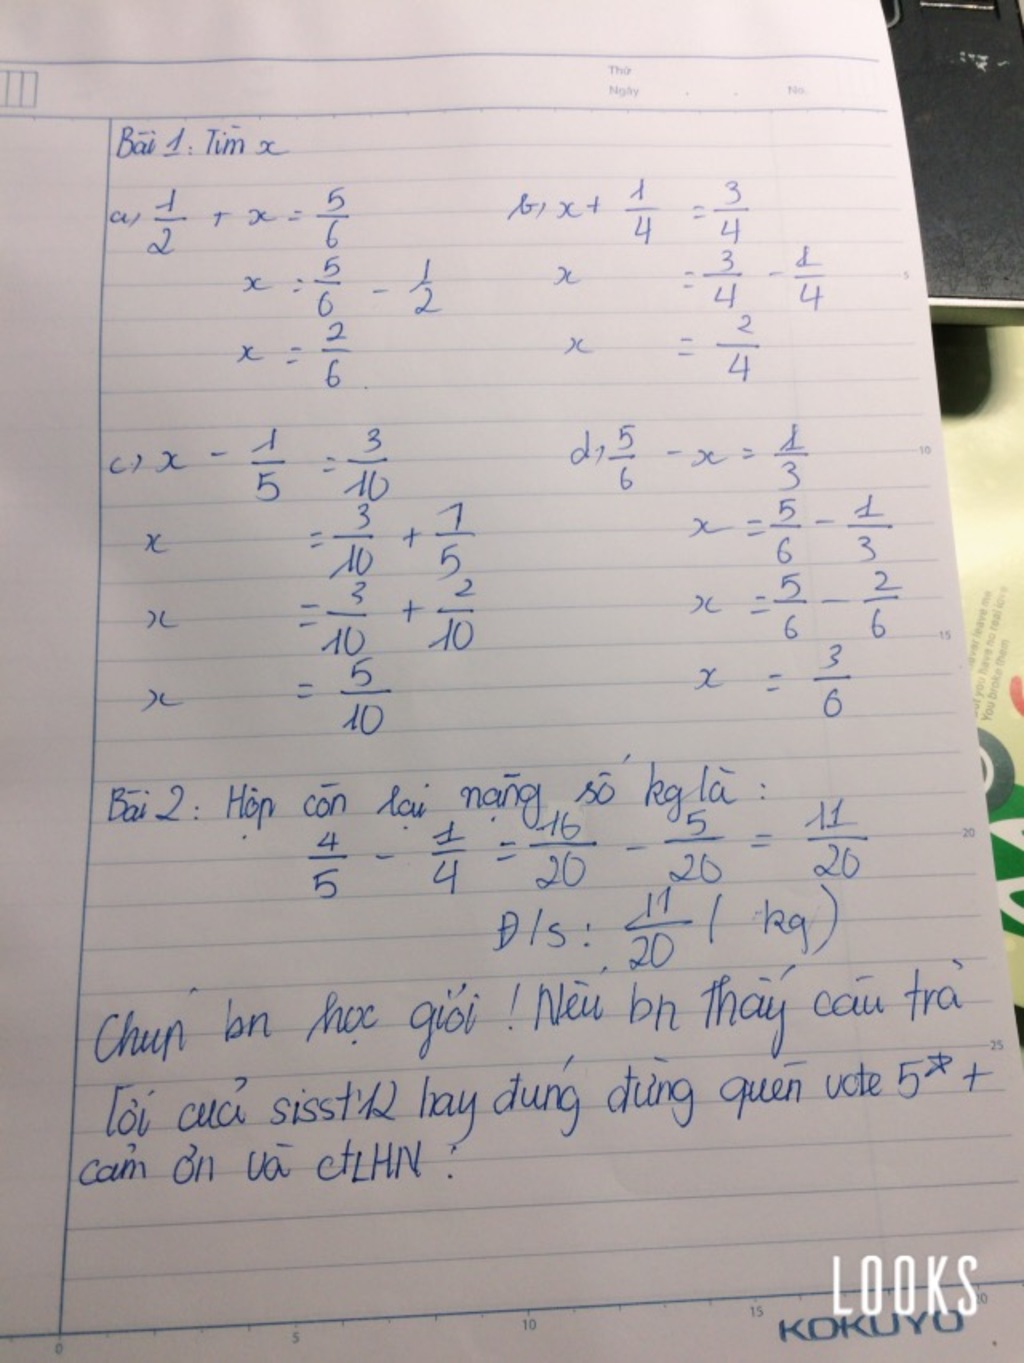 Thứ
Ngày . . No.
Bài 1: Tìm x
a, 1/2 + x = 5/6
x = 5/6 - 1/2
x = 2/6.
b, x + 1/4 = 3/4
x = 3/4 - 1/4
x = 2/4
c, x - 1/5 = 3/10
x = 3/10 + 1/5
x = 3/10 + 2/10
x = 5/10
d, 5/6 - x = 1/3
x = 5/6 - 1/3
x = 5/6 - 2/6
x = 3/6
Bài 2: Hộp còn lại nặng số kg là:
4/5 - 1/4 = 16/20 - 5/20 = 11/20
Đ/s: 11/20 (kg)
Chúc bn học giỏi! Nếu bn thấy câu trả
lời của sisst12 hay đúng đừng quên vote 5* +
cảm ơn và ctLHN!
5
10
15
20
25
0 5 10 15 20
LOOKS
KOKUYO
You broke them